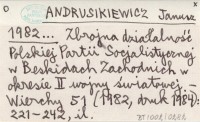 ANDRUSIKIEWICZ Janusz
1982... Zbrojna działalność
Polskiej Partii Socjalistycznej
w Beskidach Zachodnich w
okresie II wojny światowej. -
Wierchy 51 (1982, druk 1984):
221-242, il.